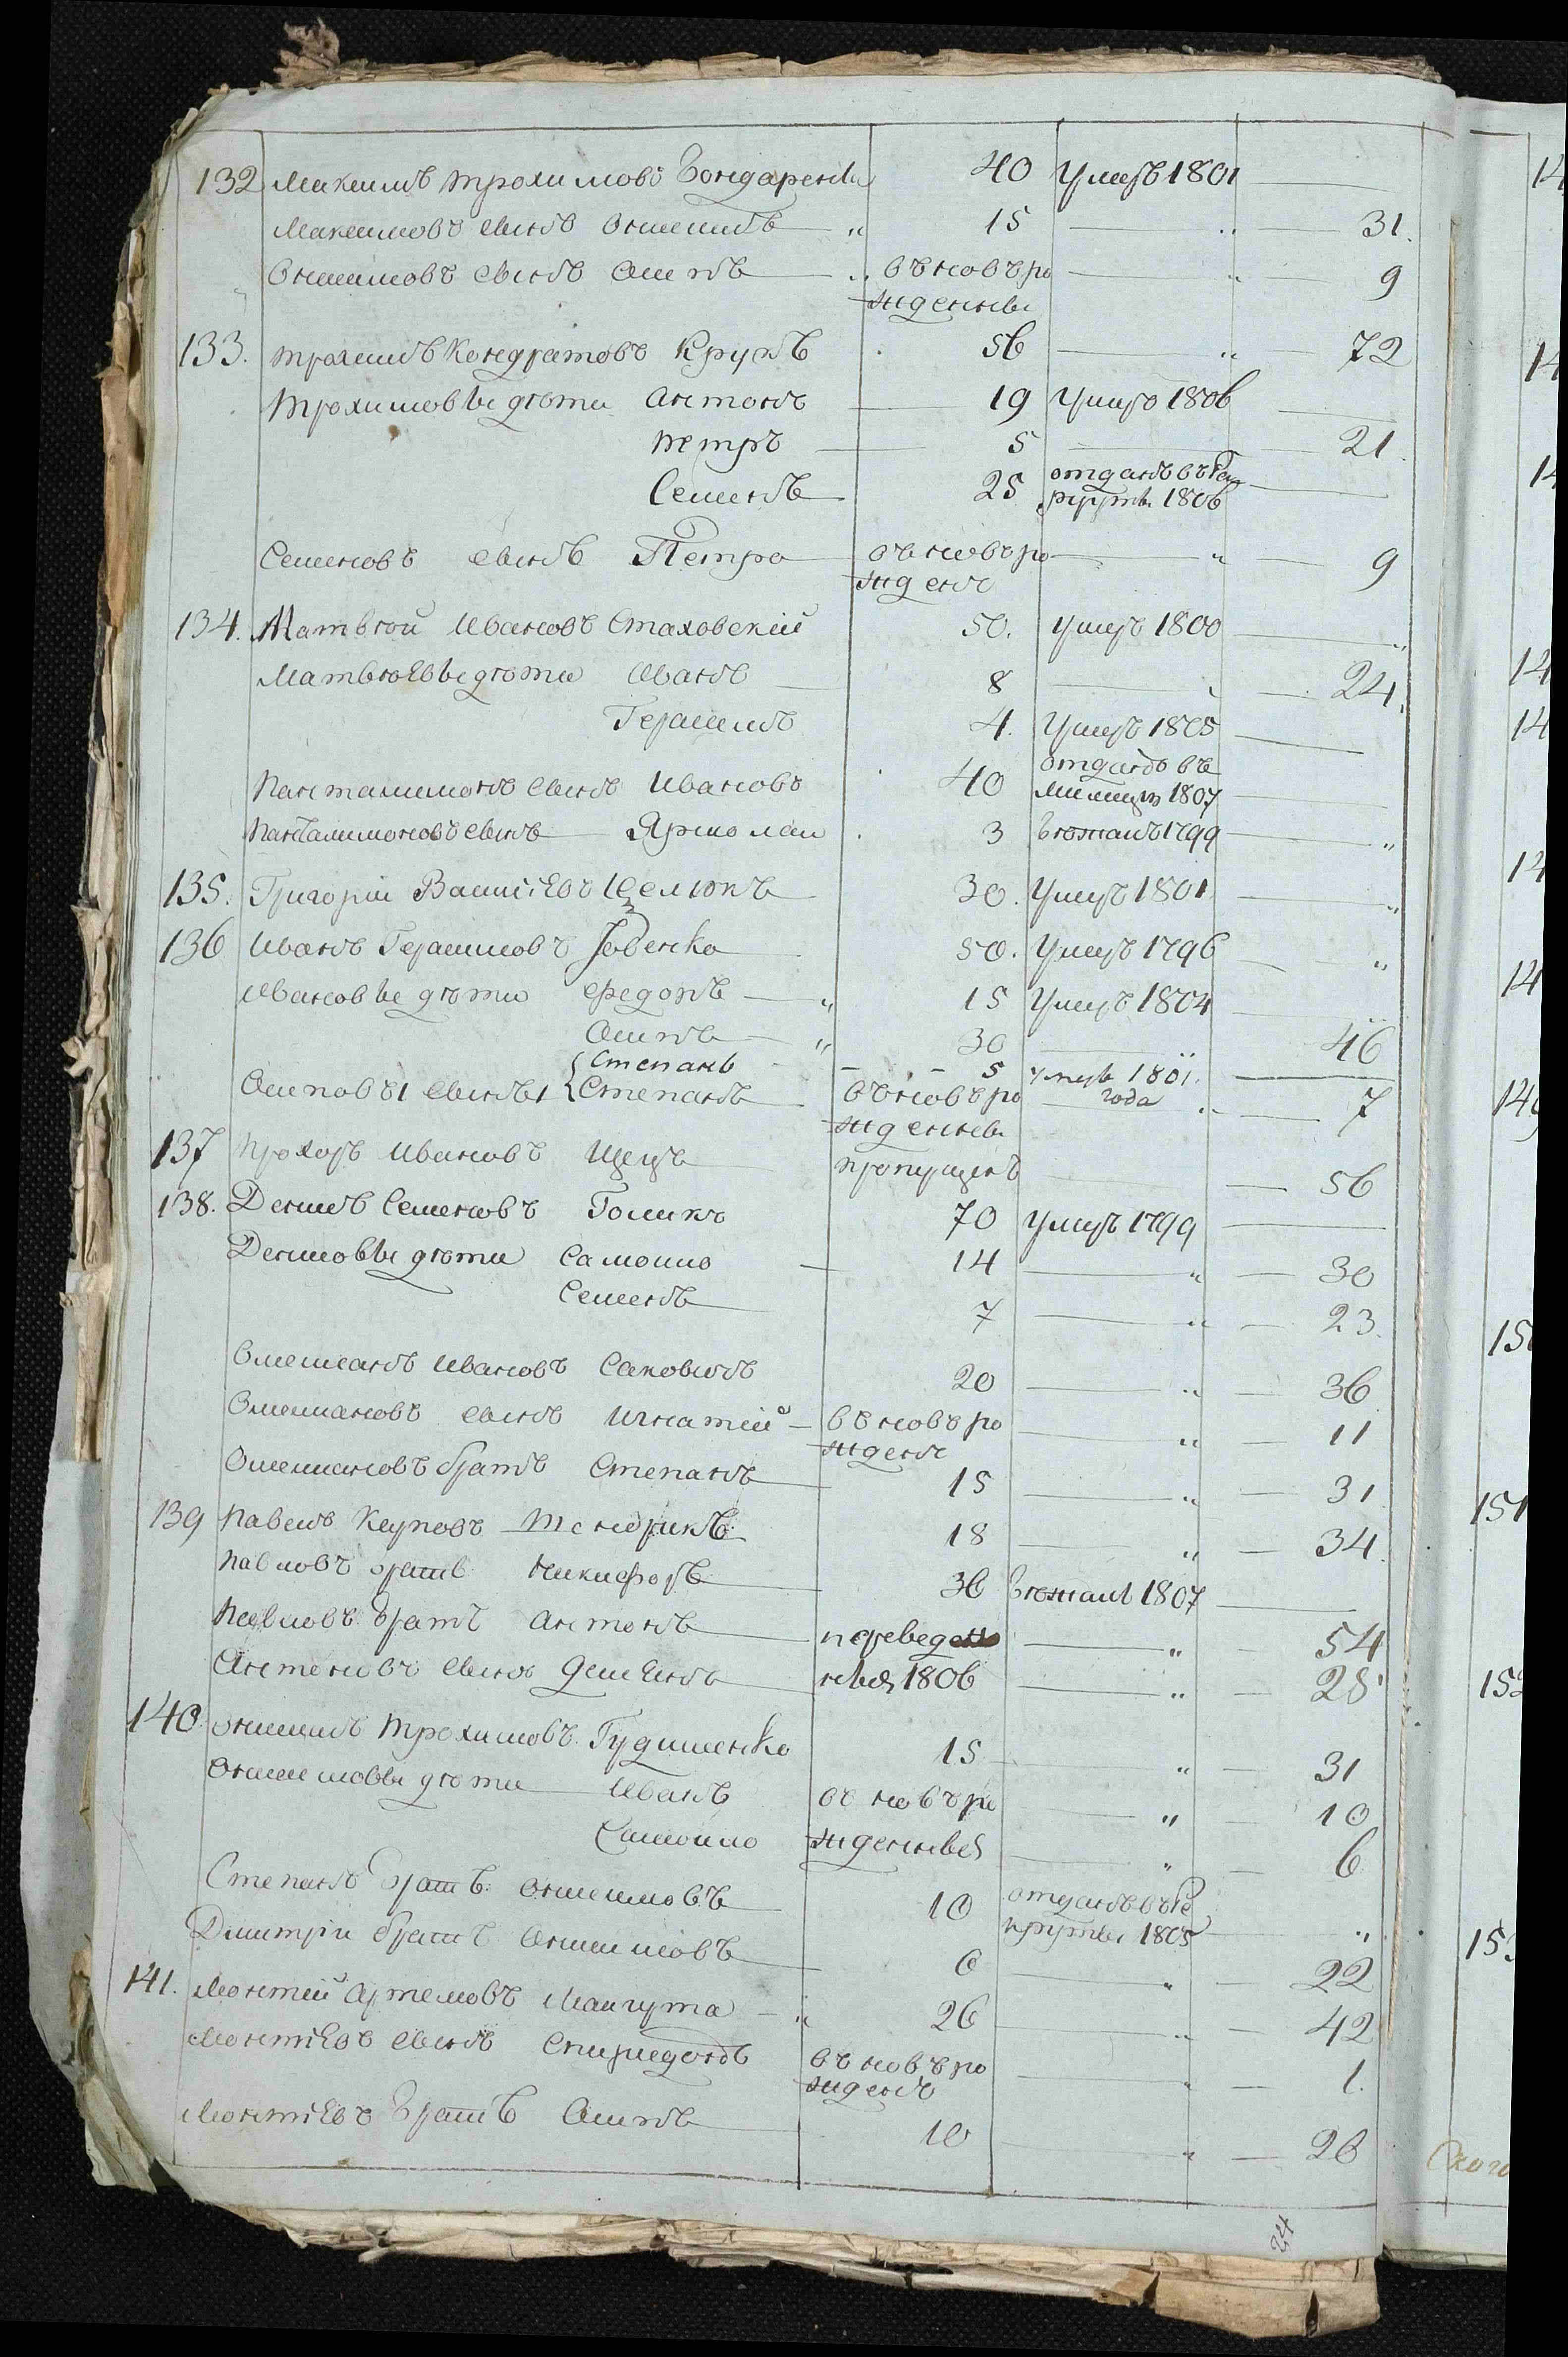 132 Максимъ Трохимовъ Бондаренко 40 умеръ 1801
Максимовъ сынъ Онисимъ 15 31.
Онисимовъ сынъ Осипъ въ новъ ро 9
жденны
133. Трохимъ Кондратовъ Крукъ 56 72
Трохимовы дѣти Антонъ 19 умеръ 1806
Петръ 5 21.
Семенъ 25 отданъ въ Рек
руты 1806
Семеновъ сынъ Петро въ новъ ро 9
жденъ
134. Матвѣй Ивановъ Стаховскій 50. умеръ 1800
Матвѣевы дѣти Иванъ 8 24.
Герасимъ 4. умеръ 1805
отданъ въ
Панталимонъ сынъ Ивановъ 40 милицію 1807
Панталимоновъ сынъ Ярмолай 3 бѣжалъ 1799
135. Григорій Васильевъ 30. умеръ 1801
136 Иванъ Герасимовъ 50. умеръ 1796
Ивановы дѣти Федотъ 15 умеръ 1804
Осипъ 30 46
Степанъ 5 умеръ 1801.
года
Осиповы сыны Степанъ въ новъ ро 7
жденны
137 Прохоръ Ивановъ пропущенъ 56
138. Денисъ Семеновъ Голикъ 70 умеръ 1799
Денисовы дѣти Самойло 14 30
Семенъ 7 23.
Омельянъ Ивановъ Саковичъ 20 36
Омельяновъ сынъ Игнатій въ новъ ро 11
жденъ
Омельяновъ братъ Степанъ 15 31
139 Павелъ 18 34.
Павловъ братъ Никифоръ 36 бѣжалъ 1807
Павловъ братъ Антонъ переведен 54
Антоновъ сынъ ны 1806 28
140. Онисимъ Трохимовъ 15 31
Онисимовы дѣти Иванъ въ новъ ро 10
Самойло жденны 6
Степанъ братъ Онисимовъ 10 отданъ въ Ре
круты 1805
Дмитрій братъ Онисимовъ 6 22
141. Леонтій Артемовъ 26 42
Леонтіевъ сынъ Спиридонъ въ новъ ро 1.
жденъ
Леонтіевъ братъ Осипъ 10 26
24